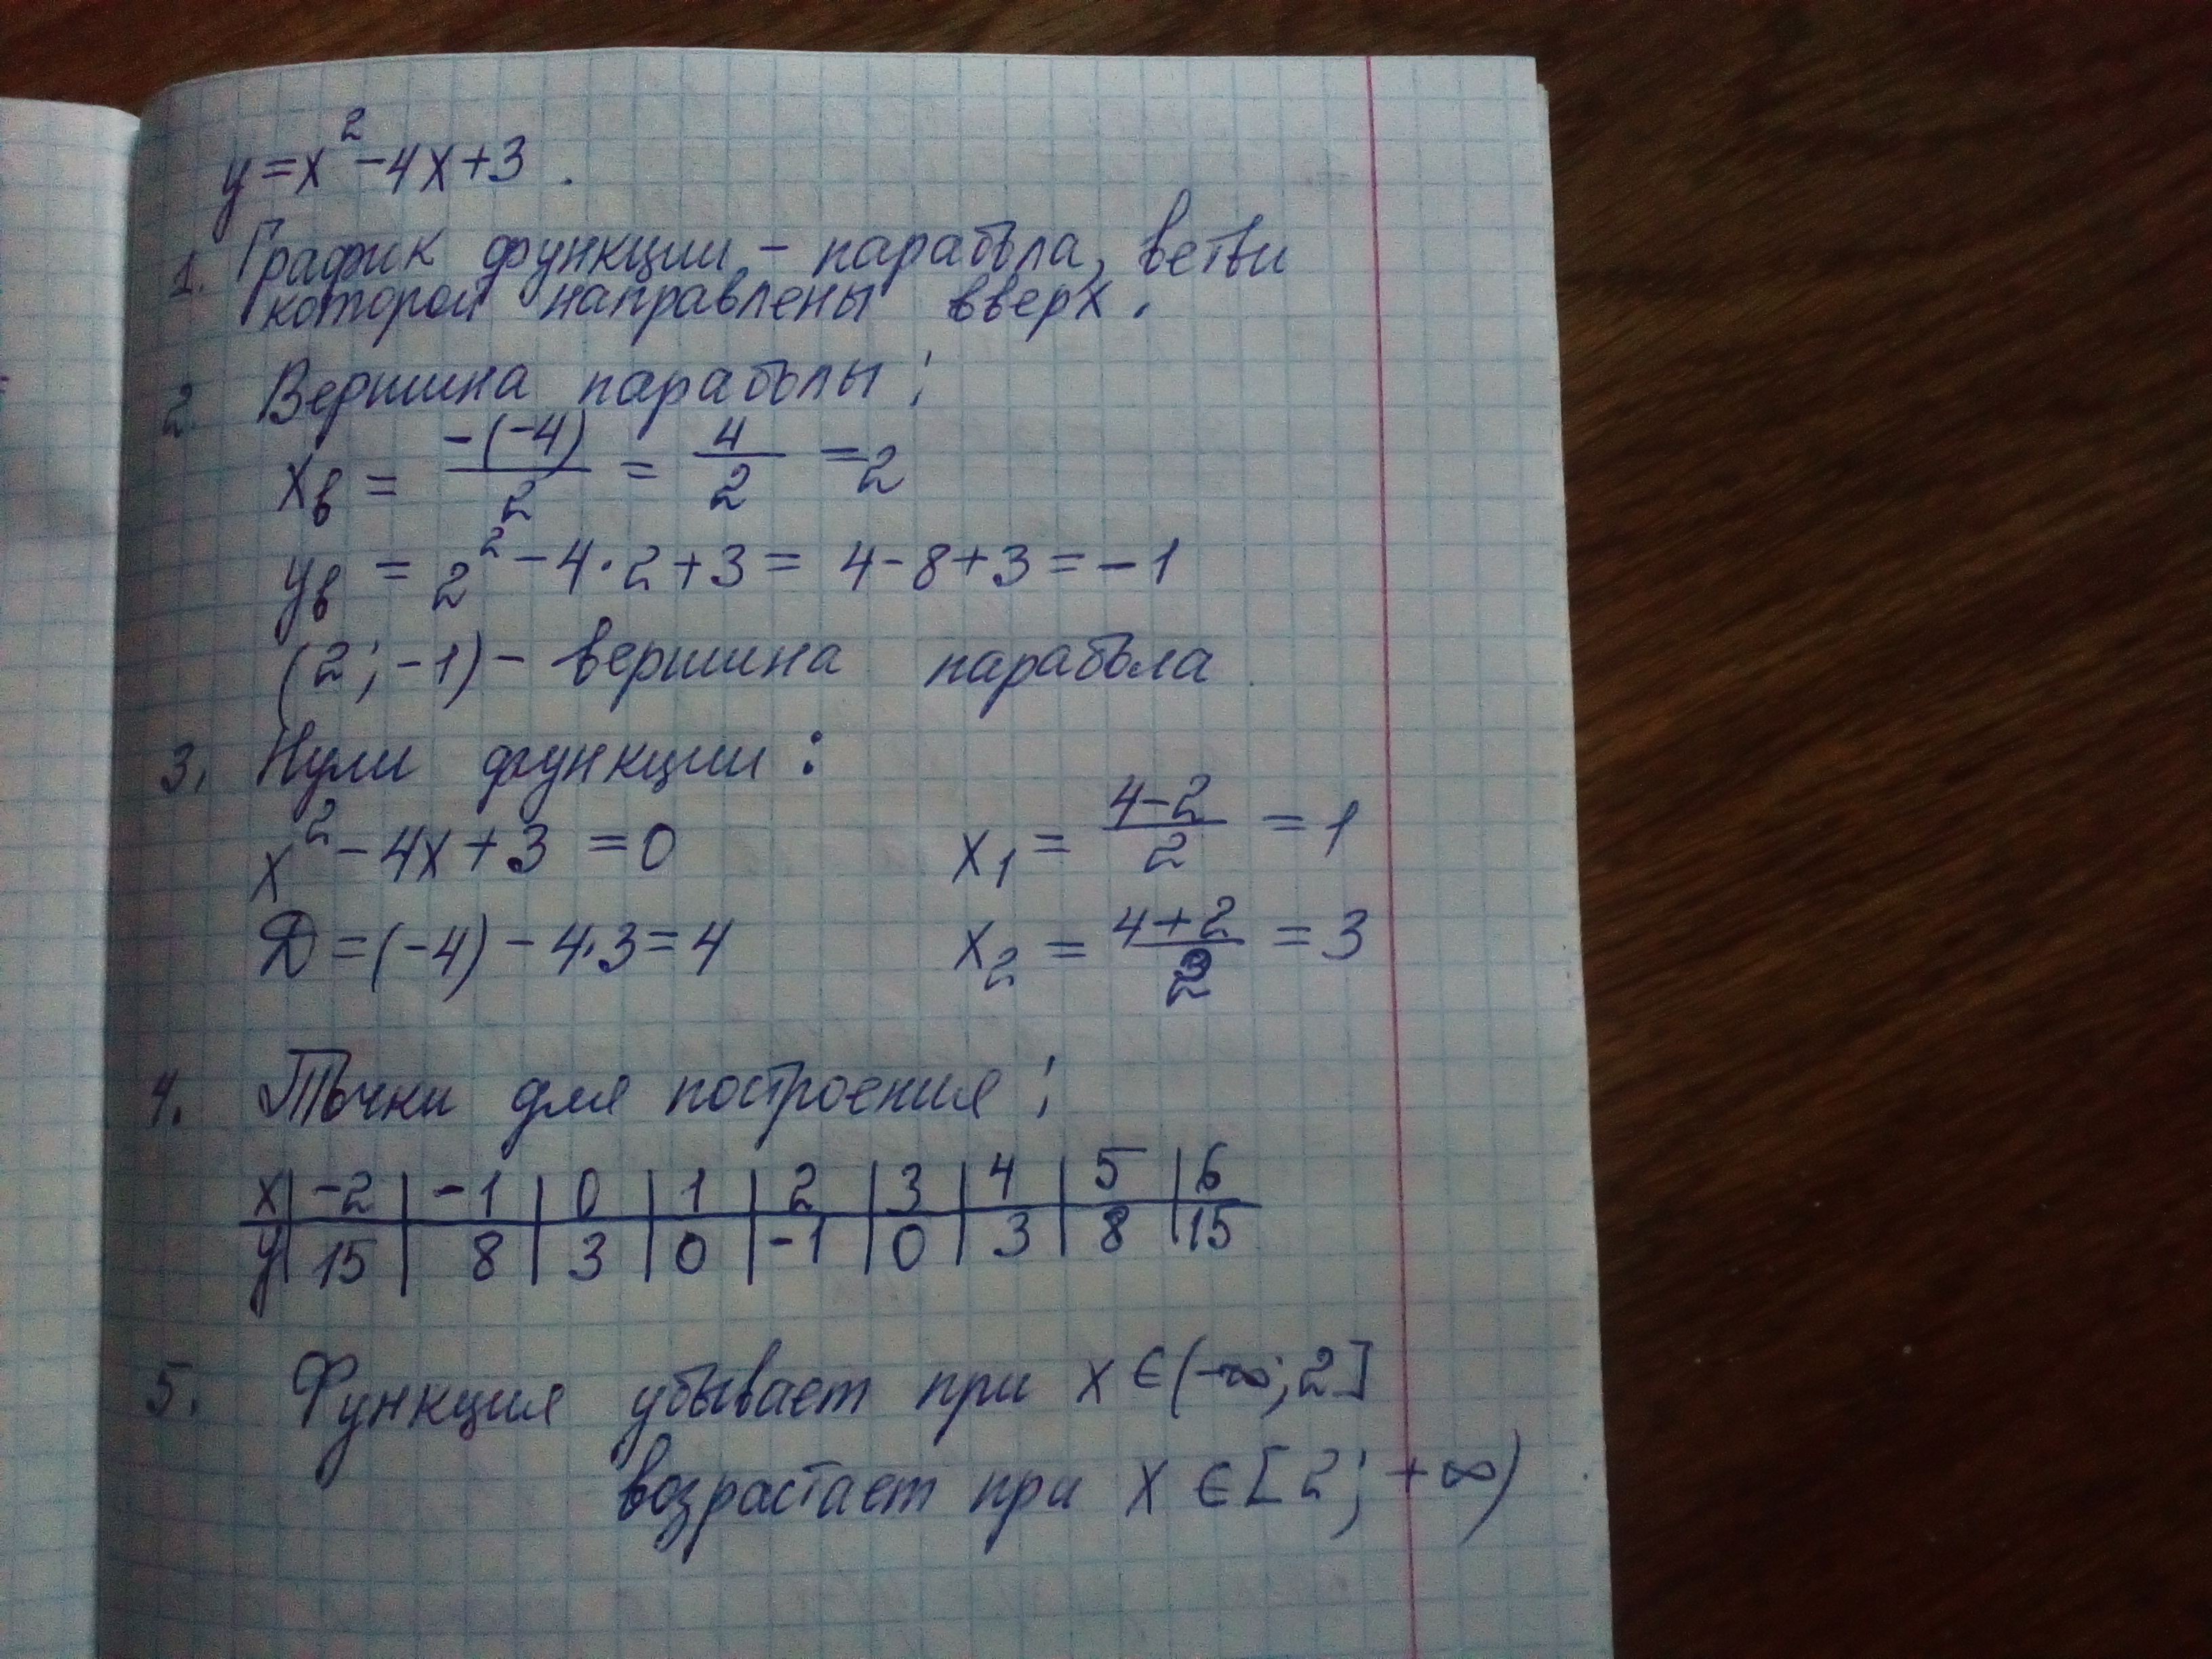 y=x²-4x+3.
1. График функции - парабола, ветви
которой направлены вверх.
2. Вершина параболы:
xв = -(-4)/2 = 4/2 = 2
yв = 2² - 4·2+3 = 4-8+3 = -1
(2; -1) - вершина парабола
3. Нули функции:
x² - 4x + 3 = 0 x₁ = 4-2/2 = 1
D = (-4) - 4·3 = 4 x₂ = 4+2/2 = 3
4. Точки для построения:
x | -2 | -1 | 0 | 1 | 2 | 3 | 4 | 5 | 6
y | 15 | 8 | 3 | 0 | -1 | 0 | 3 | 8 | 15
5. Функция убывает при x ∈ (-∞; 2]
возрастает при x ∈ [2; +∞)